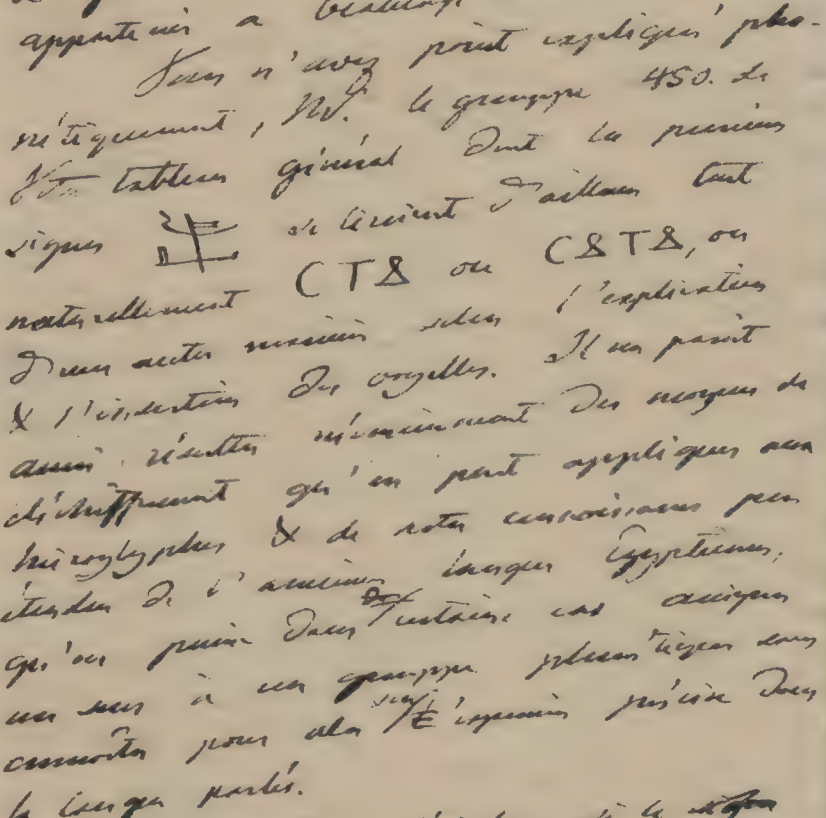 appartenir a beaucoup
Vous n'avez point expliqué pho-
nétiquement, Mr. le grouppe 450. de
Vtre tableau général dont les premiers
signes se liroient d'ailleurs tout
naturellement CTϪ ou CϪTϪ, ou
d'une autre manière selon l'explication
& l'insertion des voyelles. Il me paroit
aussi résulter nécessairement des moyens de
déchiffrement qu'on peut appliquer aux
hiéroglyphes & de notre connoissance peu
étendue de l'ancienne langue Egyptienne,
qu'on puisse dans certains cas assigner
un sens à un grouppe phonétique sans
connoitre pour cela l'expression précise dans
la langue parlée.